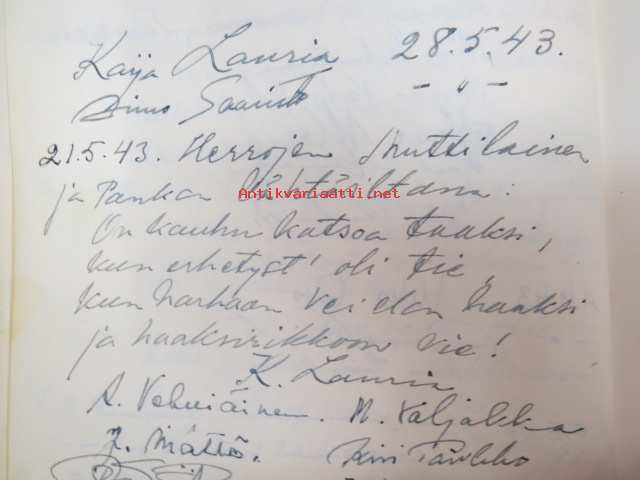 Kaija Lauria 28.5.43.
Aimo Saaristo - " -
21.5.43. Herrojen Muttilainen
ja Pankan
Antikvariaatti.net
On kauhu katsoa taaksi,
kun erhetyst' oli tie
kun harhaan vei elon haaksi
ja haaksirikkoon vie!
K. Lauria
A. Vehviäinen. M. Väljakka
J. Mättö. Kivi